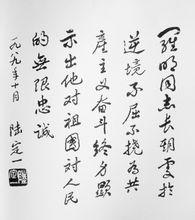 罗明同志长期处于
逆境不屈不挠为共
产主义奋斗终身显
示出他对祖国对人民
的无限忠诚
一九八九年十月
陆定一